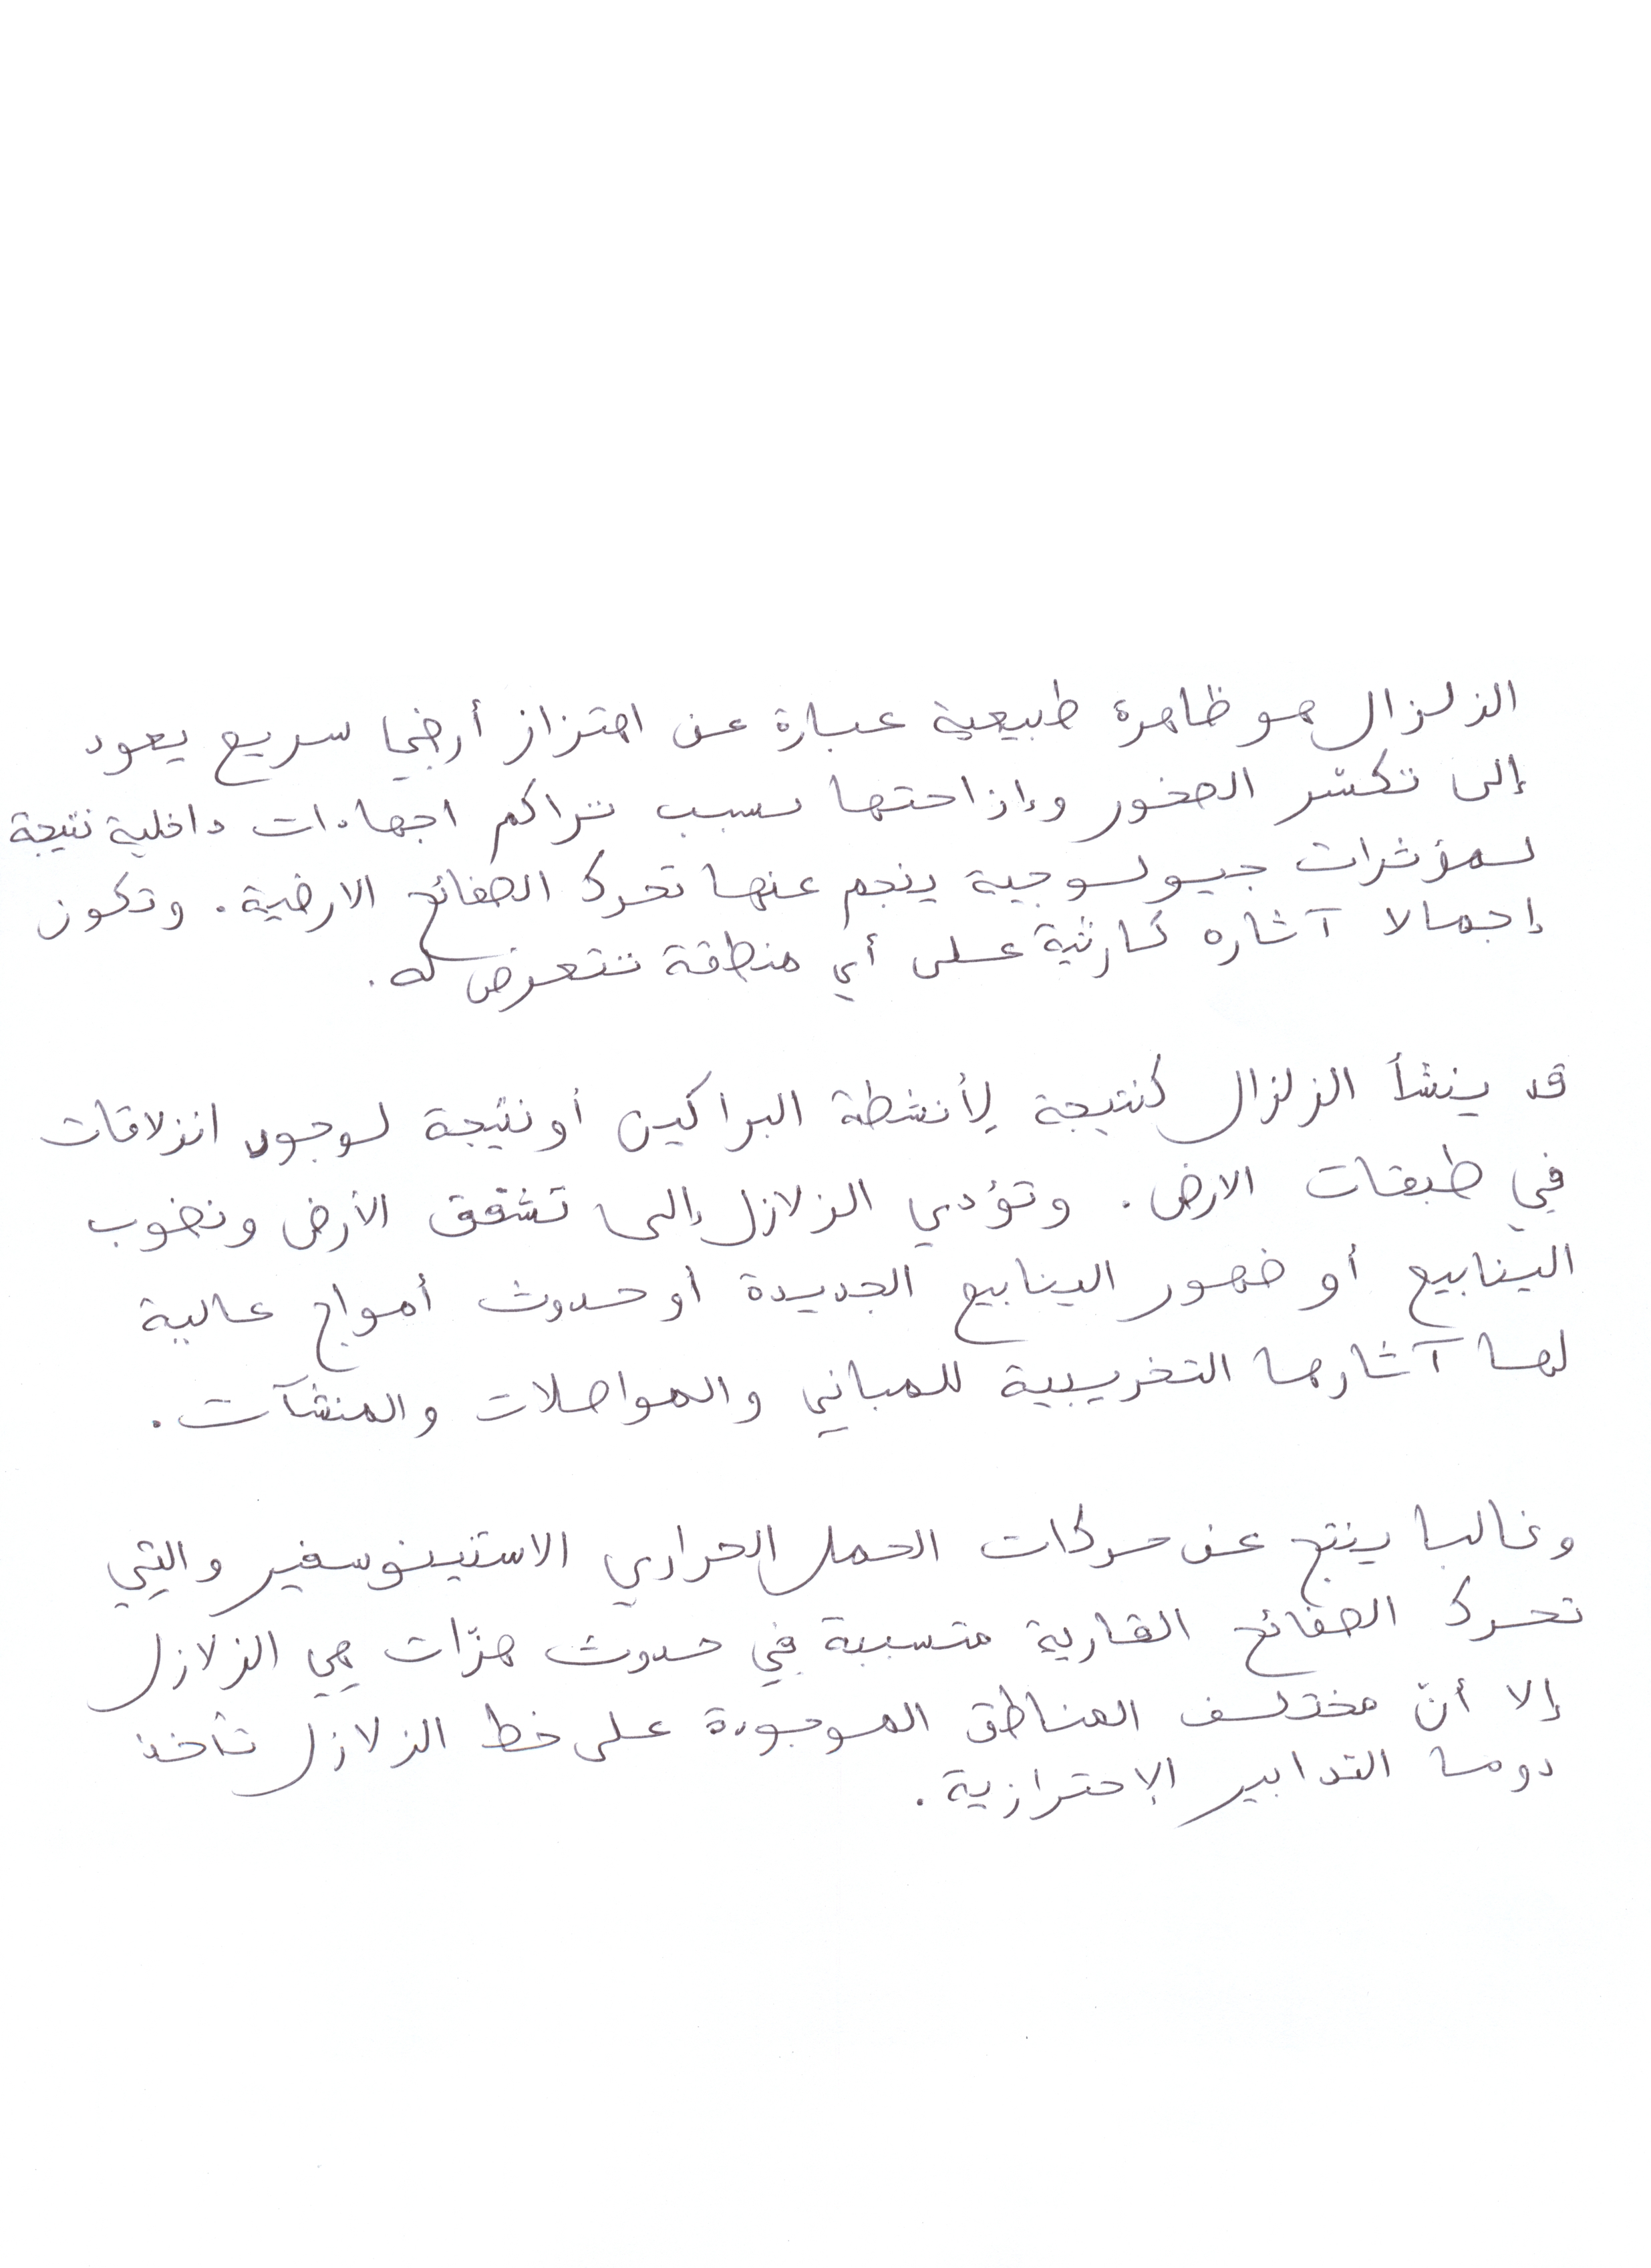 الزلزال هو ظاهرة طبيعية عبارة عن اهتزاز أرضي سريع يعود
إلى تكسّر الصخور وإزاحتها بسبب تراكم اجهادات داخلية نتيجة
لمؤثرات جيولوجية ينجم عنها تحرك الصفائح الارضية. وتكون
إجمالا آثاره كارثية على أي منطقة تتعرض له.
قد ينشأ الزلزال كنتيجة لأنشطة البراكين أو نتيجة لوجود انزلاقات
في طبقات الارض. وتؤدي الزلازل إلى تشقق الأرض ونضوب
الينابيع أو ضهور الينابيع الجديدة أو حدوث أمواج عالية
لها آثارها التخريبية للمباني والمواصلات والمنشآت.
وغالبا ينتج عن حركات الحمل الحراري الاستينوسفير والتي
تحرك الصفائح القارية متسببة في حدوث هزّات هي الزلازل
إلا أنّ مختلف المناطق الموجودة على خط الزلازل تأخذ
دوما التدابير الإحترازية.